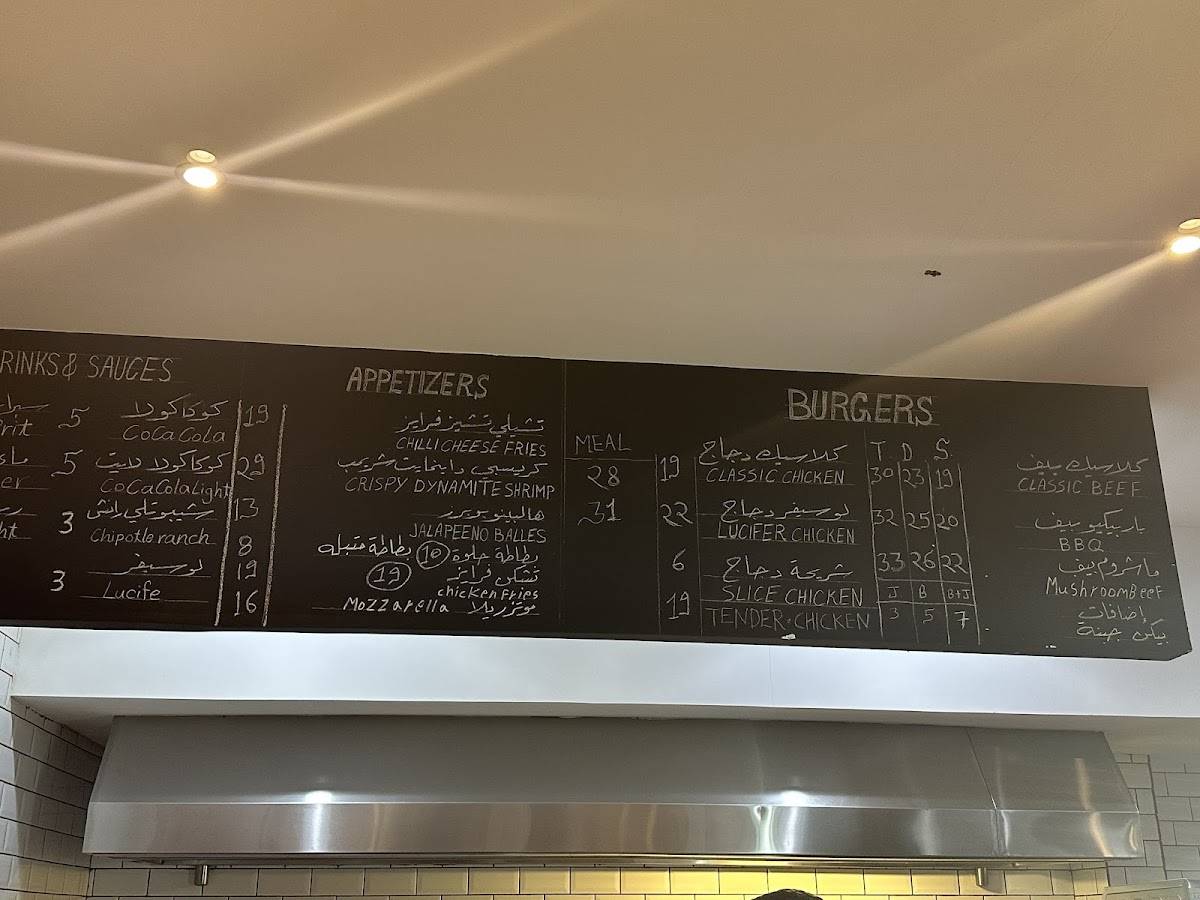 RINKS & SAUCES
5 كوكاكولا
Prit CoCaCola
5 كوكاكولا لايت
er CoCaColaLight
3 شيبوتلي رانش
ht Chipotle ranch
لوسيفر
3 Lucife
APPETIZERS
19 تشيلي تشيز فرايز
CHILLI CHEESE FRIES
29 كريسبي داينمايت شريمب
CRISPY DYNAMITE SHRIMP
13 هالبينو بوبرز
JALAPEENO BALLES
8 بطاطة حلوة 10 بطاطة متبله
19 تشكن فرايز
19 chicken Fries
16 موتزريلا MoZZarella
BURGERS
MEAL
28 19 كلاسيك دجاج
CLASSIC CHICKEN
31 22 لوسيفر دجاج
LUCIFER CHICKEN
6 شريحة دجاج
SLICE CHICKEN
19 TENDER.CHICKEN
T. D. S.
30 23 19 كلاسيك بيف
CLASSIC BEEF
32 25 20 باربيكيو بيف
BBQ
33 26 22 ماشروم بيف
MushroomBeef
J B B+J إضافات
3 5 7 بيكن جبنة